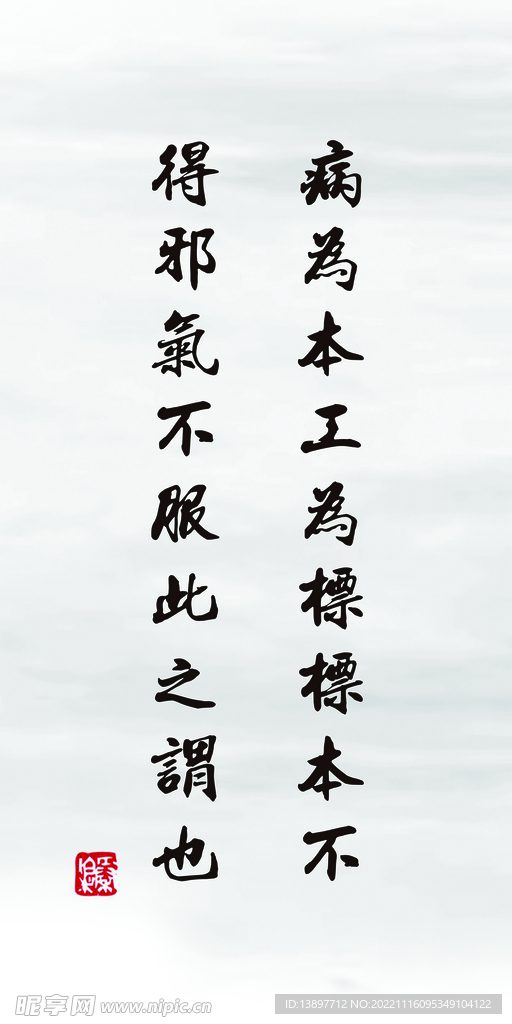 病為本工為標標本不
得邪氣不服此之謂也
昵享网 www.nipic.cn
ID:13897712 NO:20221116095349104122